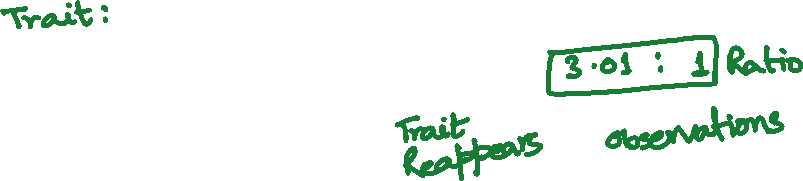 Trait:
3.01 : 1 Ratio
Trait
Reappears observations